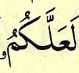 لَعَلَّكُمُ